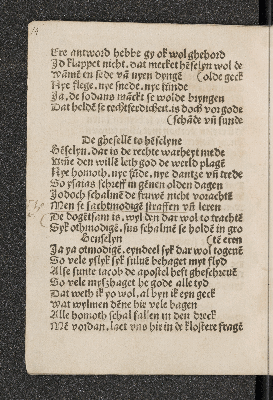 Ere antword hebbe gy ok wol ghehord
Jd klappet nicht. dat mercket héselyn wol de
wãnẽ en sede vã nyen dyngẽ (olde geck
Nye flege. nye snede. nye sünde
Ja. de sodans mãckt se wolde bryngen
Dat heldẽ se rechtferdicheit. is doch vorgode
(schãde vñ sunde
De ghesellẽ to hẽselyne
Hẽselyn. dat is de rechte warheyt mede
Uñe den willẽ leth god de werld plagẽ
Nye homoth. nye sũde. nye dantze vñ trede
So ysaias schreff in gẽnen olden dagen
Jodoch schalmẽ de fruwẽ nicht vorachtẽ
Men se sachtmodige straffen vñ leren
De dogẽtsam is. wyl den dat wol to trachtẽ
Syk othmodigẽ. sus schalmẽ se holdẽ in gro
Henselyn (tẽ eren
Ja ya otmodigẽ. eyndeel syk dar wol togenẽ
So vele yslyk syk suluẽ behaget myt flyd
Alse sunte iacob de apostel hefft gheschreuẽ
So vele myszhaget he gode alle tyd
Dat weth ik yo wol. al byn ik eyn geck
wat wylmen dẽne hir vele sagen
Alle homoth schal fallen in den dreck
Mẽ vordan. laet vns hir in de klostere fragẽ